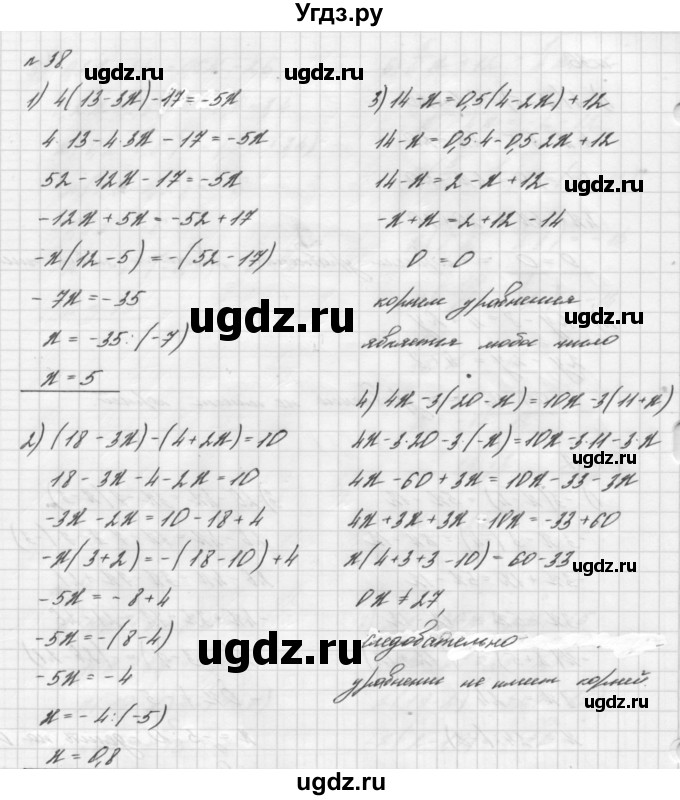 Угдз.ру
№ 38
1) 4(13-3x)-17=-5x
4·13-4·3x-17=-5x
52-12x-17=-5x
-12x+5x=-52+17
-x(12-5)=-(52-17)
-7x=-35
x=-35:(-7)
x=5
2) (18-3x)-(4+2x)=10
18-3x-4-2x=10
-3x-2x=10-18+4
-x(3+2)=-(18-10)+4
-5x=-8+4
-5x=-(8-4)
-5x=-4
x=-4:(-5)
x=0,8
3) 14-x=0,5(4-2x)+12
14-x=0,5·4-0,5·2x+12
14-x=2-x+12
-x+x=2+12-14
0=0
корнем уравнения
является любое число
4) 4x-3(20-x)=10x-3(11+x)
4x-3·20-3(-x)=10x-3·11-3·x
4x-60+3x=10x-33-3x
4x+3x+3x-10x=-33+60
x(4+3+3-10)=60-33
0x≠27,
следовательно
уравнение не имеет корней
ugdz.ru
ugdz.ru
ugdz.ru
ugdz.ru
ugdz.ru
ugdz.ru
ugdz.ru
ugdz.ru
ugdz.ru
ugdz.ru
ugdz.ru